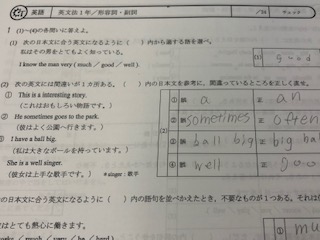 英語 英文法1年/形容詞・副詞
(1)~(4)の各問いに答えよ。
(1) 次の日本文に合う英文になるように( )内から適する語を選べ。
私はその男をとてもよく知っている。
I know the man very ( much / good / well ).
(1) good
(2) 次の英文には間違いが1カ所ある。( )内の日本文を参考に、間違っているところを正しく直せ。
① This is a interesting story.
(これはおもしろい物語です。)
② He sometimes goes to the park.
(彼はよく公園へ行きます。)
③ I have a ball big.
(私は大きなボールを持っています。)
④ She is a well singer.
(彼女は上手な歌手です。) *singer:歌手
(2)
① 誤 a 正 an
② 誤 sometimes 正 often
③ 誤 ball big 正 big ba
④ 誤 well 正 goo
の日本文に合う英文になるように( )内の語句を並べかえたとき、不要なものが1つある。それは
はとても熱心に働きます。
works / much / very / he / hard )
① mu